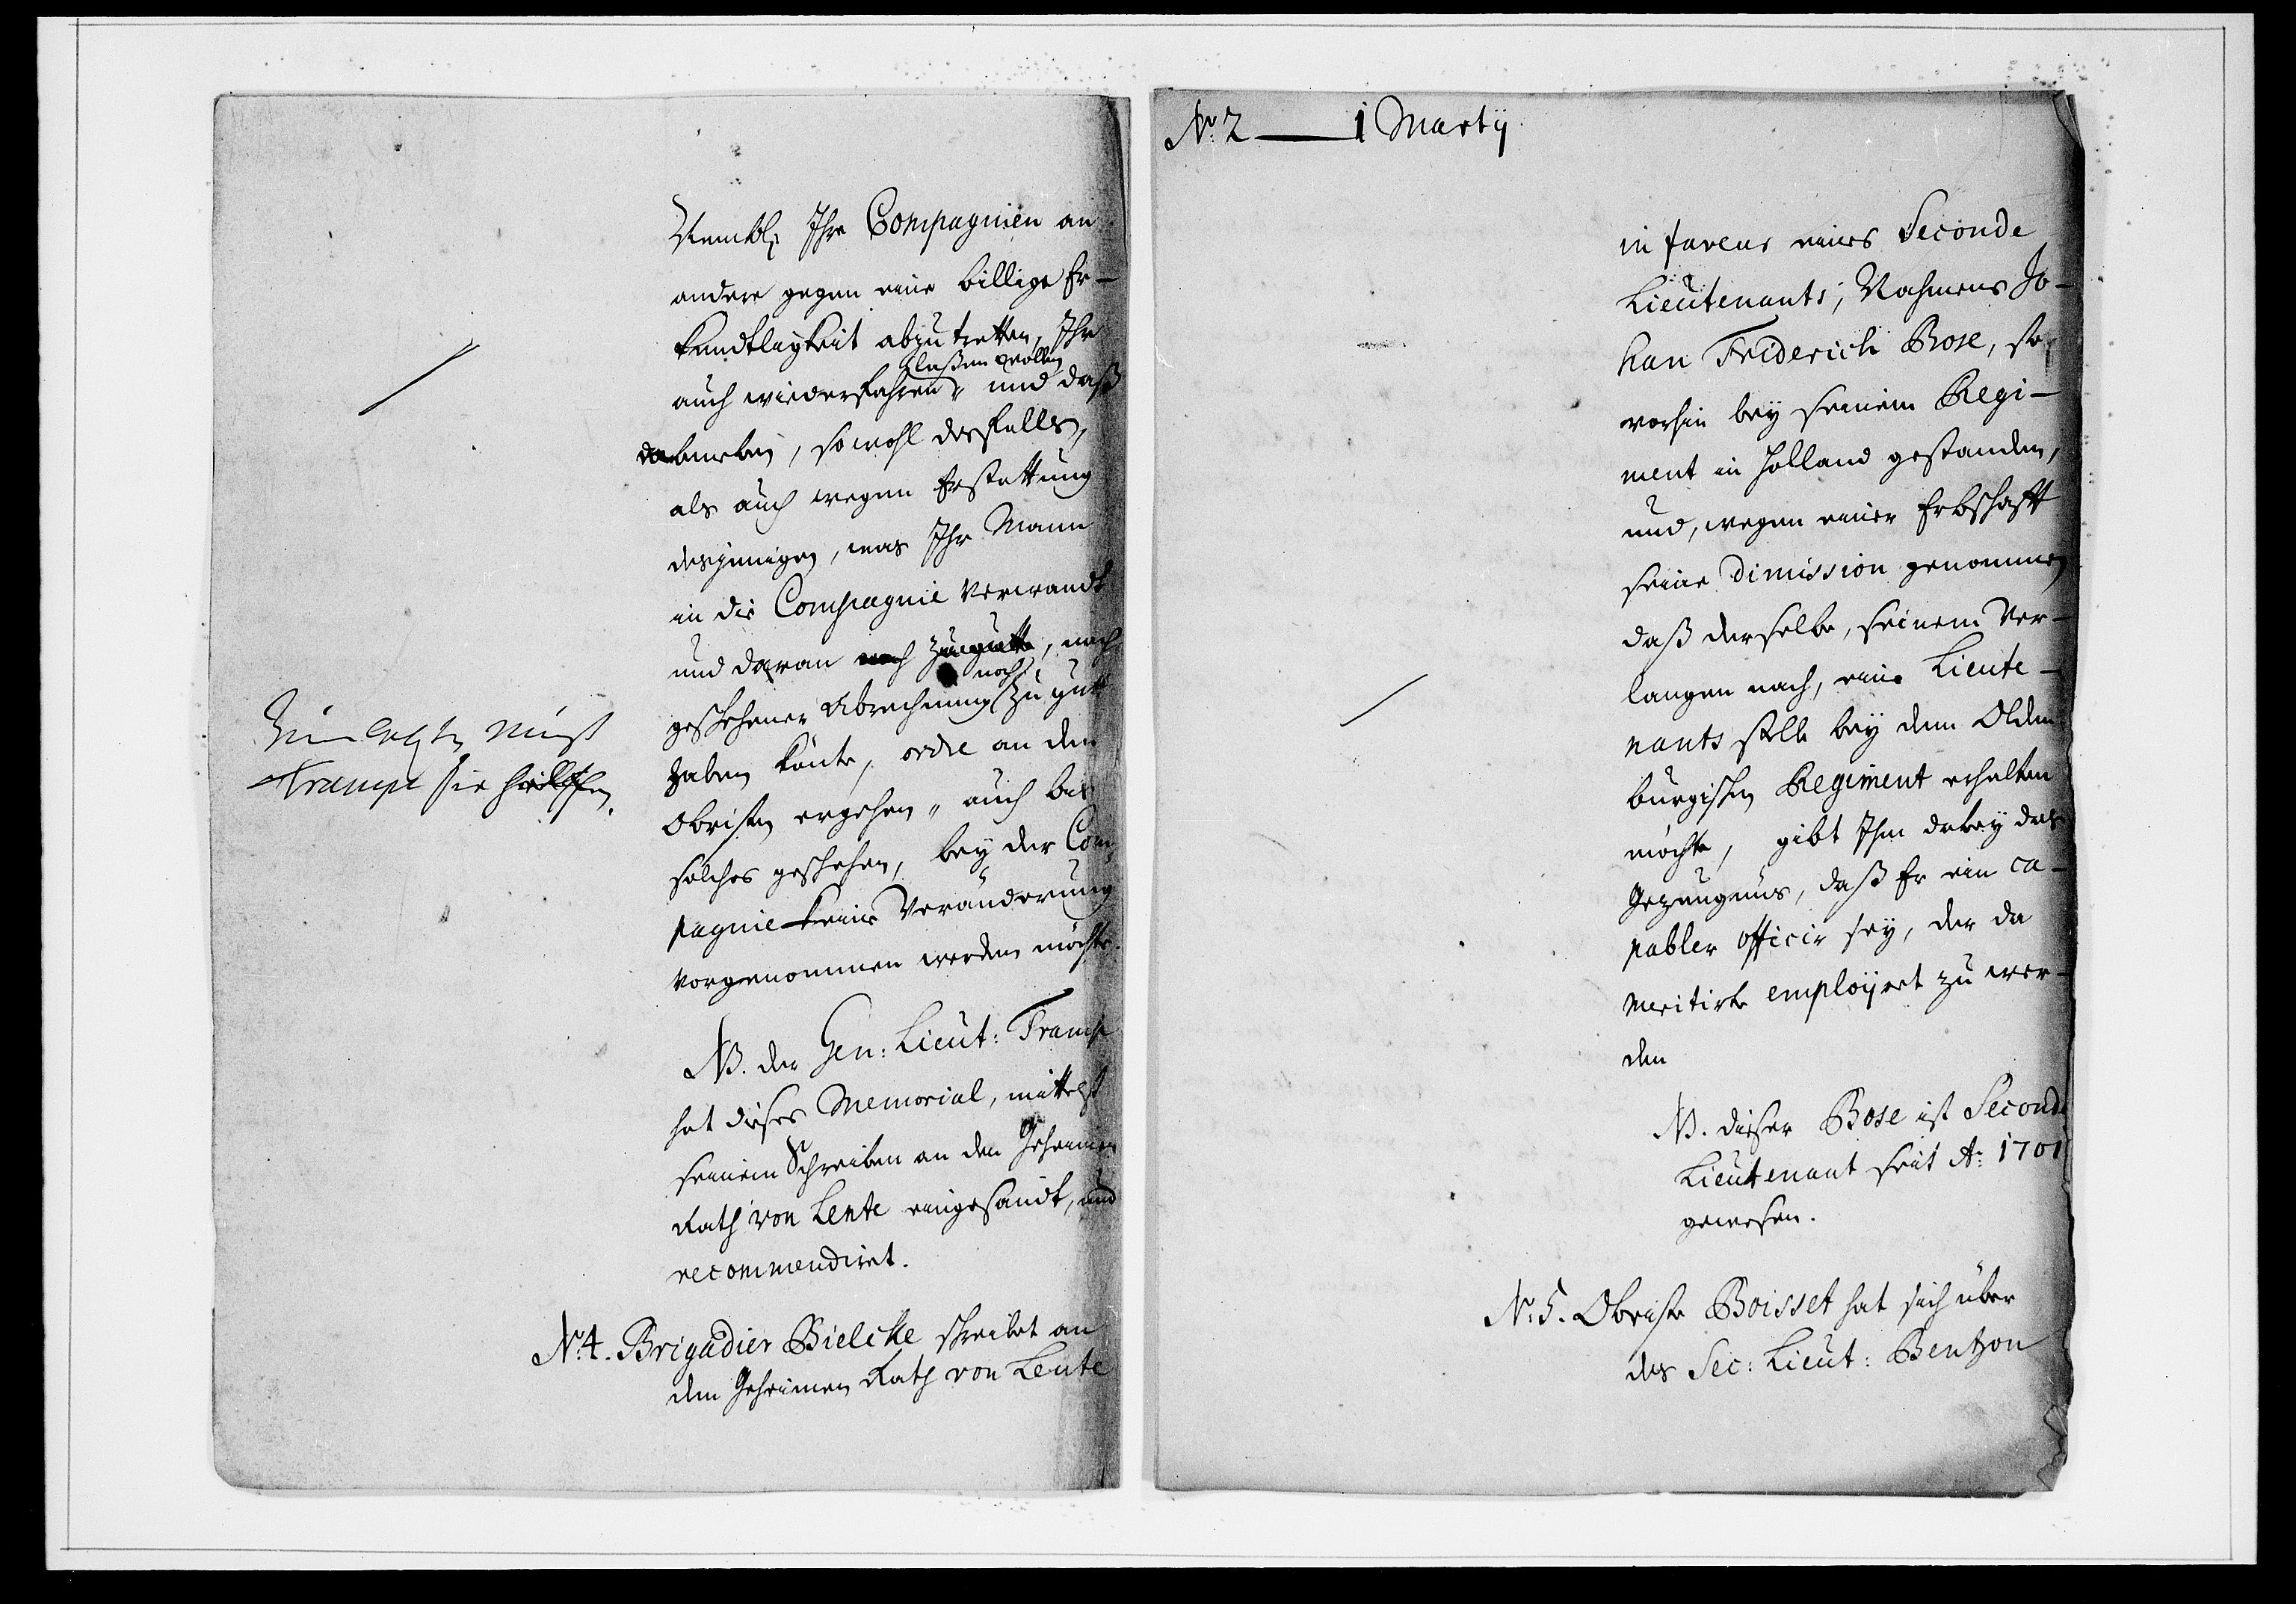 Nembl: Ihre Compagnien an
andere gegen eine billige Er-
kendtligkeit abzutretten, Ihr
laßen wollen
auch wiederfahren, und daß
daneben, sowohl desfalls,
als auch wegen Erstattung
desjenigen, was Ihr Mann
in die Compagnie verwandt
und daran noch zugutte, nach
noch
geschehener Abrechnung zu gutt
haben könte, ordre an den
Obristen ergehen, auch bis
solches geschehen, bey der Com-
pagnie keine Veränderung
vorgenommen werden möchte.
must
Trampe sie helffen.
NB. der Gen: Lieut: Trampe
hat dieses Memorial, mittelst
seinem Schreiben an den Geheimen
Rath von Lente eingesandt, und
recommendiret.
No. 4. Brigadier Bielcke schreibet an
den Geheimen Rath von Lente
No. 2 — 1 Martij
in faveur eines Seconde
Lieutenants, Nahmens Jo-
han Friderich Bose, so
vorhin bey seinem Regi-
ment in Holland gestanden,
und, wegen einer Erbschafft
seine dimission genommen
daß derselbe, seinem Ver-
langen nach, eine Lieute-
nants stelle bey dem Olden-
burgischen Regiment erhalten
möchte, gibt Ihm dabey das
Gezeugnüs, daß Er ein ca-
pabler officir sey, der da
meritirte employret zu wer-
den
NB. dieser Bose ist Seconde
Lieutenant seit Ao: 1701
gewesen.
No. 5. Obriste Boisset hat sich über
des Sec: Lieut: Bentzon